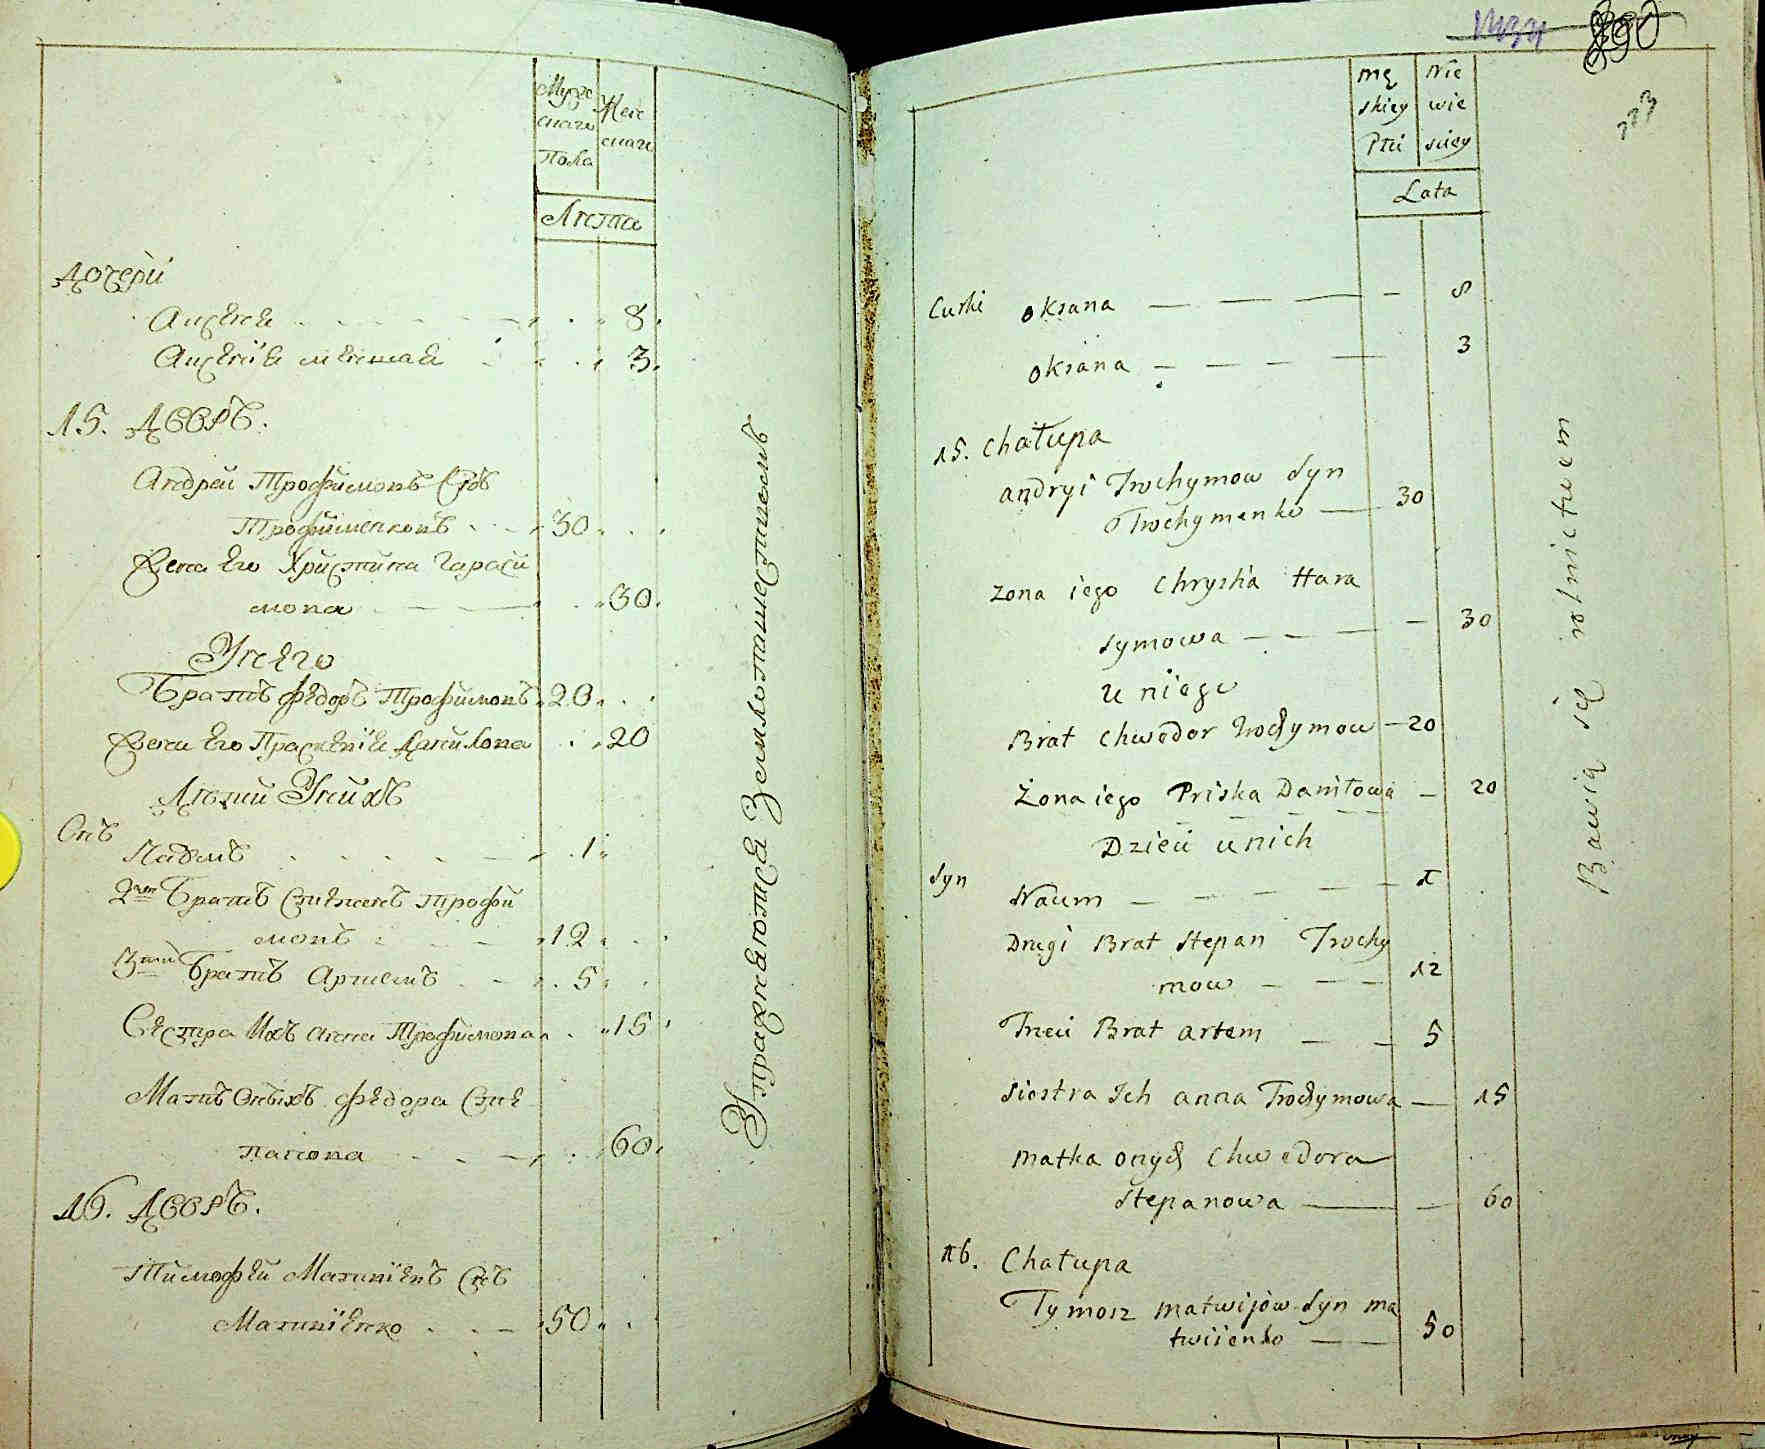 Мужс
скаго
пола
Жен
скаго
Лѣта
Дочери
8
3
15. Дворъ.
Андрей Трофимовъ Снъ
Трофименковъ 30
Жена Его Христина Гараси
мова 30
У него
Братъ Федоръ Трофимовъ 20
Жена Его Данилова 20
Дѣти У нихъ
Снъ
Наумъ 1
2й Братъ Степанъ Трофи
мовъ 12
3й Братъ Артемъ 5
Сестра Ихъ Анна Трофимова 15
Мать Оныхъ Федора Сте
панова 60
16. Дворъ.
Тимофей Матвіевъ Снъ
Матвіенко 50
Упражняются Землепашествомъ
890
mę
skiey
Płci
Nie
wie
sciey
Lata
Curki oksana — — — — 8
oksana — — — — 3
15. chałupa
andryi Trochymow syn
Trochymenko — 30
zona iego Chrystia Hara
symowa — — — — 30
u niego
Brat chwedor Trochymow — 20
żona iego Priska Daniłowa — 20
Dzieci u nich
syn Naum — — — — 1
Drugi Brat stepan Trochy
mow — — — 12
Trzeci Brat artem — — 5
siostra Ich anna Trochymowa — 15
matka onych Chwedora
stepanowa — — 60
16. Chałupa
Tymosz matwijów syn ma
twiienko — — 50
Bawią się rolnictwem